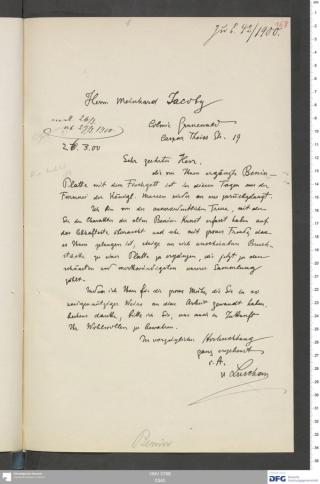 Zu E. 42/1900.
Herrn Meinhard Jacoby
Colonie Grunewald
Caspar Theiss Str. 19
Sehr geehrter Herr.
die von Ihnen ergänzte Benin-
Platte mit dem Fischgott ist in diesen Tagen aus der
Formerei der Königl. Museen wieder an uns zurückgelangt.
Ich bin von der ausserordentlichen Treue, mit der
Sie den Charakter der alten Benin Kunst erfasst haben auf
das überrascht und sehe mit grosser Freude, dass
es Ihnen gelungen ist, einige an sich unscheinbare Bruch-
stücke zu einer Platte zu ergänzen, die jetzt zu den
schönsten und merkwürdigsten unserer Sammlung
gehört.
Indem ich Ihnen für die grosse Mühe, die Sie in so
uneigennütziger Weise an diese Arbeit gewandt haben,
bestens danke, bitte ich Sie, uns auch in Zukunft
Ihr Wohlwollen zu bewahren.
In vorzüglicher Hochachtung
ganz ergebenst
i. A.
v Luschan
Benin
DFG